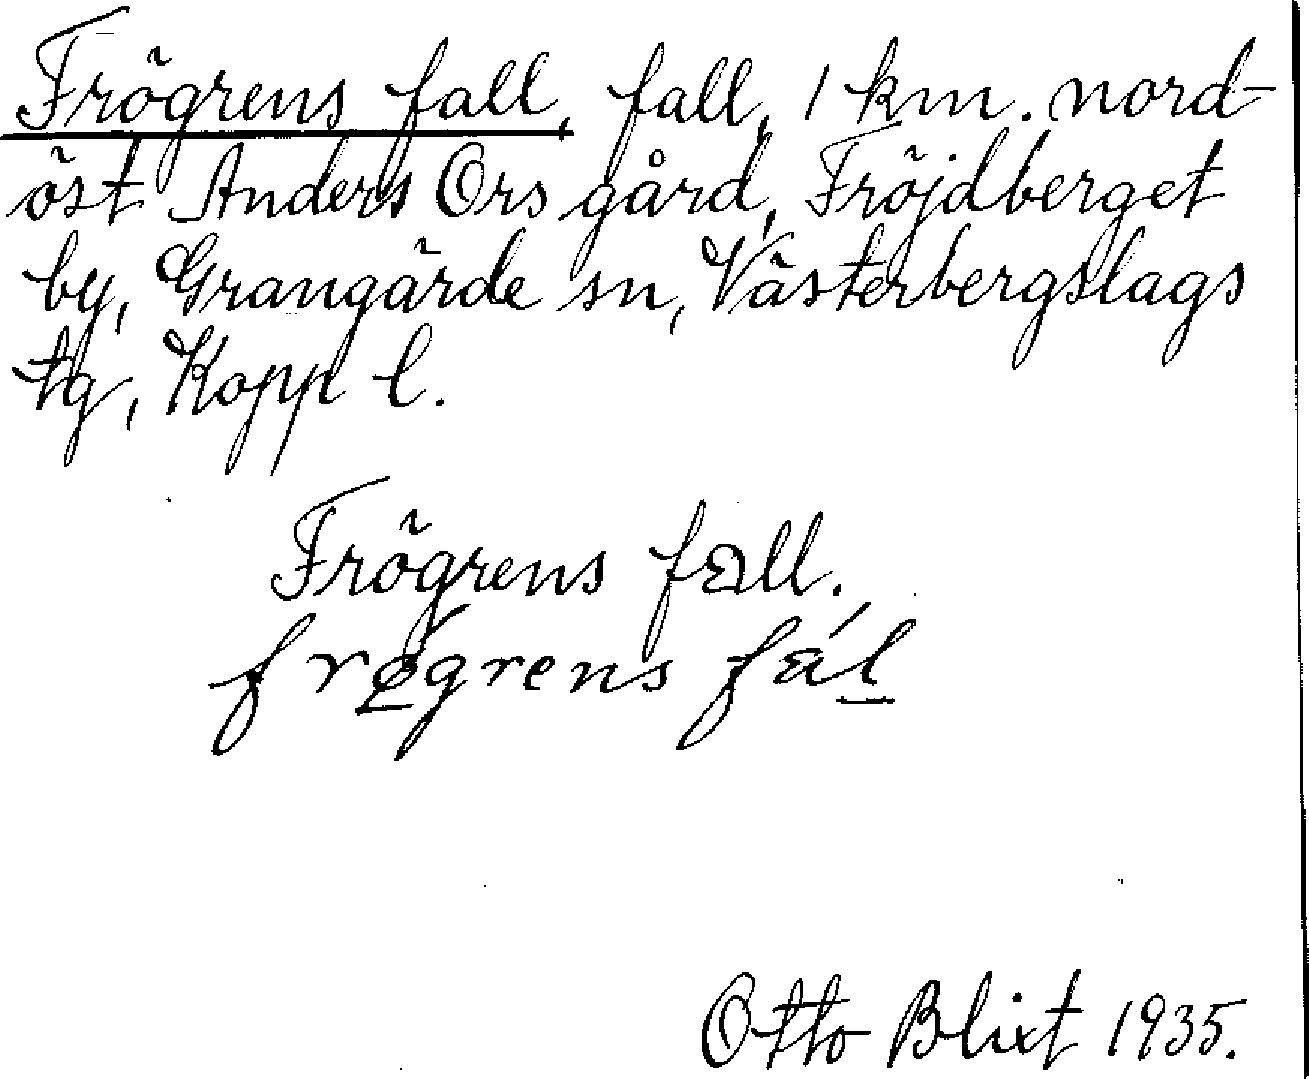 Frögrens fall, fall, 1 km. nord-
öst Anders Ors gård, Fröjdberget
by, Grangärde sn, Västerbergslags
tg, Kopp l.
Frögrens fall.
frøgrens fal
Otto Blixt 1935.